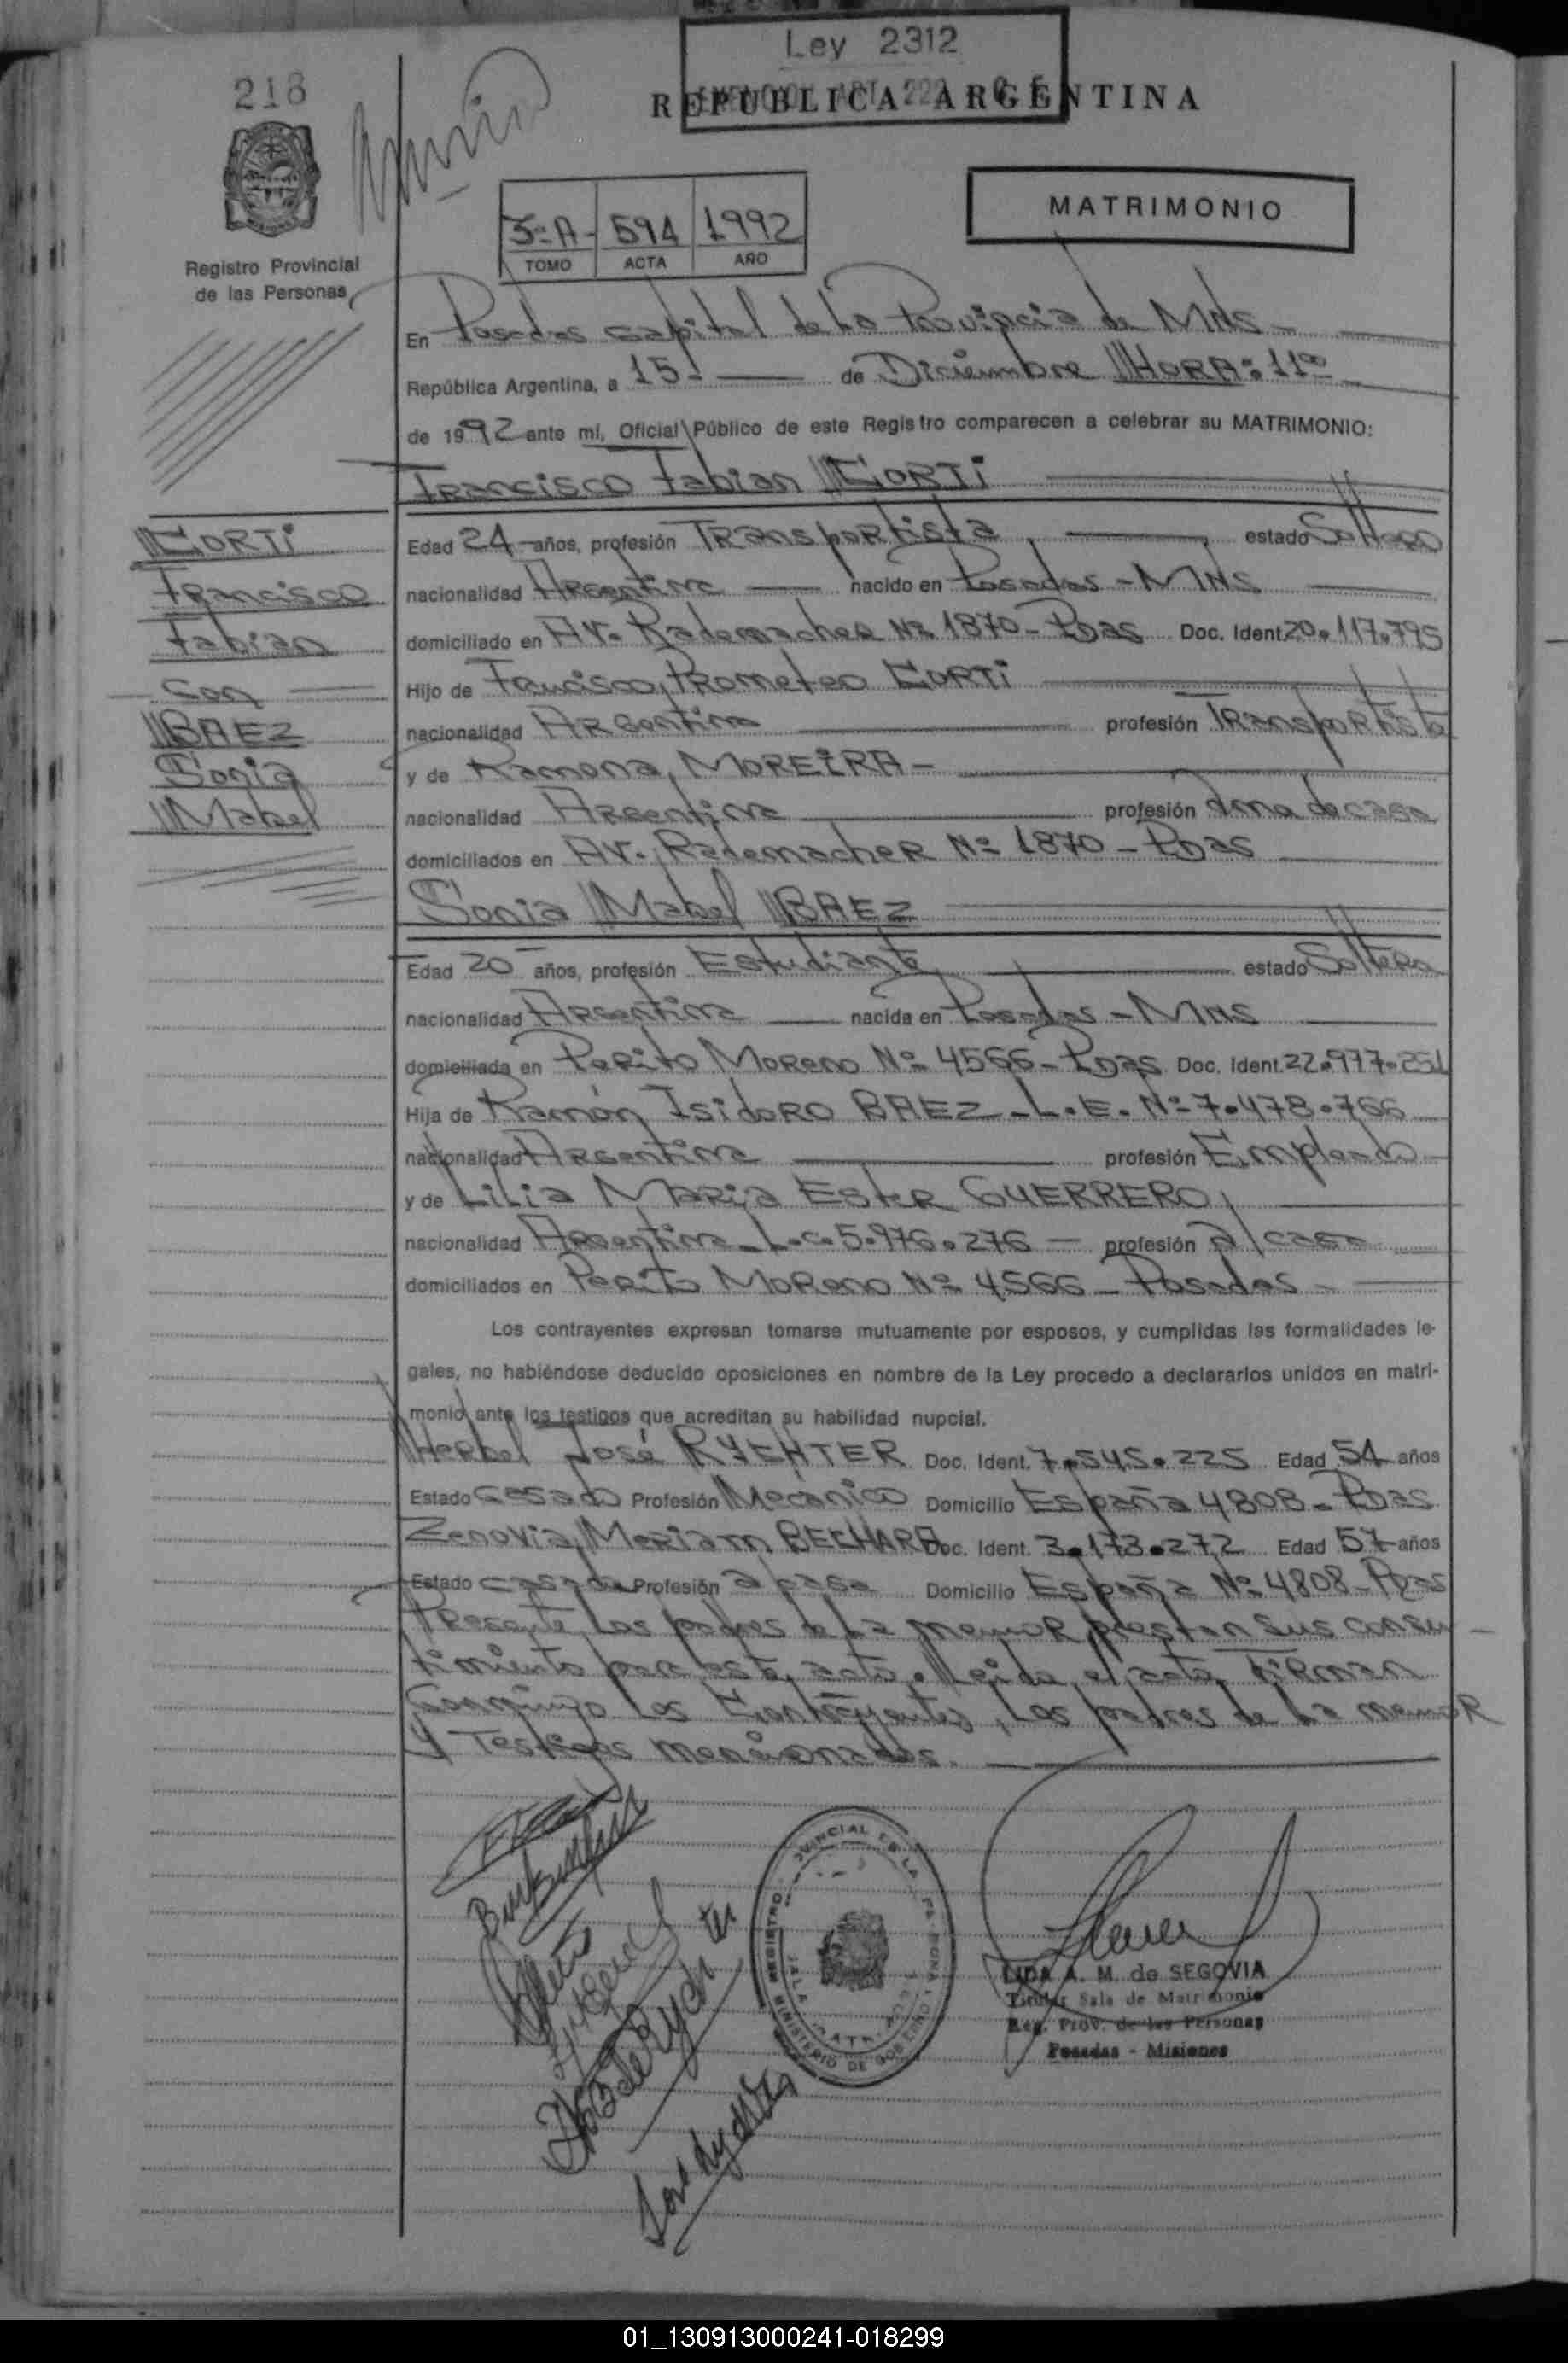 Ley 2312
218
REPUBLICA ARGENTINA
MATRIMONIO
594 1992
TOMO ACTA AÑO
Registro Provincial
de las Personas
En Posadas capital de La Provincia de Mnes -
República Argentina, a 15 - de Diciembre HORA: 11
de 1992 ante mi, Oficial Público de este Registro comparecen a celebrar su MATRIMONIO:
Francisco Fabian CORTI
CORTI
Francisco
Fabian
Con
BAEZ
Sonia
Mabel
Edad 24 años, profesión Transportista, estado Soltero
nacionalidad Argentina nacido en Posadas - MNS
domiciliado en Av. Rademacher Nº 1870 - Pdas Doc. Ident. 20.117.795
Hijo de Francisco, Prometeo CORTI
nacionalidad Argentina profesión Transportista
y de Ramona, MOREIRA -
nacionalidad Argentina profesión Ama de casa
domiciliados en Av. Rademacher Nº 1870 - Pdas
Sonia Mabel BAEZ
Edad 20 años, profesión Estudiante estado Soltera
nacionalidad Argentina nacida en Posadas - MNS
domiciliada en Perito Moreno Nº 4566 - Pdas Doc. Ident. 22.977.251
Hija de Ramón Isidoro BAEZ - L.E. Nº 7.478.766
nacionalidad Argentina profesión Empleado
y de Lilia Maria Ester GUERRERO
nacionalidad Argentina - L.C. 5.976.276 - profesión a/casa
domiciliados en Perito Moreno Nº 4566 - Posadas -
Los contrayentes expresan tomarse mutuamente por esposos, y cumplidas las formalidades le-
gales, no habiéndose deducido oposiciones en nombre de la Ley procedo a declararlos unidos en matri-
monio ante los testigos que acreditan su habilidad nupcial.
José RYCHTER Doc. Ident. 7.545.225 Edad 54 años
Estado Casado Profesión Mecánico Domicilio España 4808 - Pdas
Zenovia, Meriam BECHARA Doc. Ident. 3.173.272 Edad 57 años
Estado casada Profesión a casa Domicilio España Nº 4808 - Pdas
Presente Los padres de La menor prestan sus consen-
timiento para este acto. Leida el acta, Firman
Conmigo Los Contrayentes, Los padres de La menor
y Testigos mencionados.
LIDA A. M. de SEGOVIA
Titular Sala de Matrimonio
Reg. Prov. de las Personas
Posadas - Misiones
01_130913000241-018299